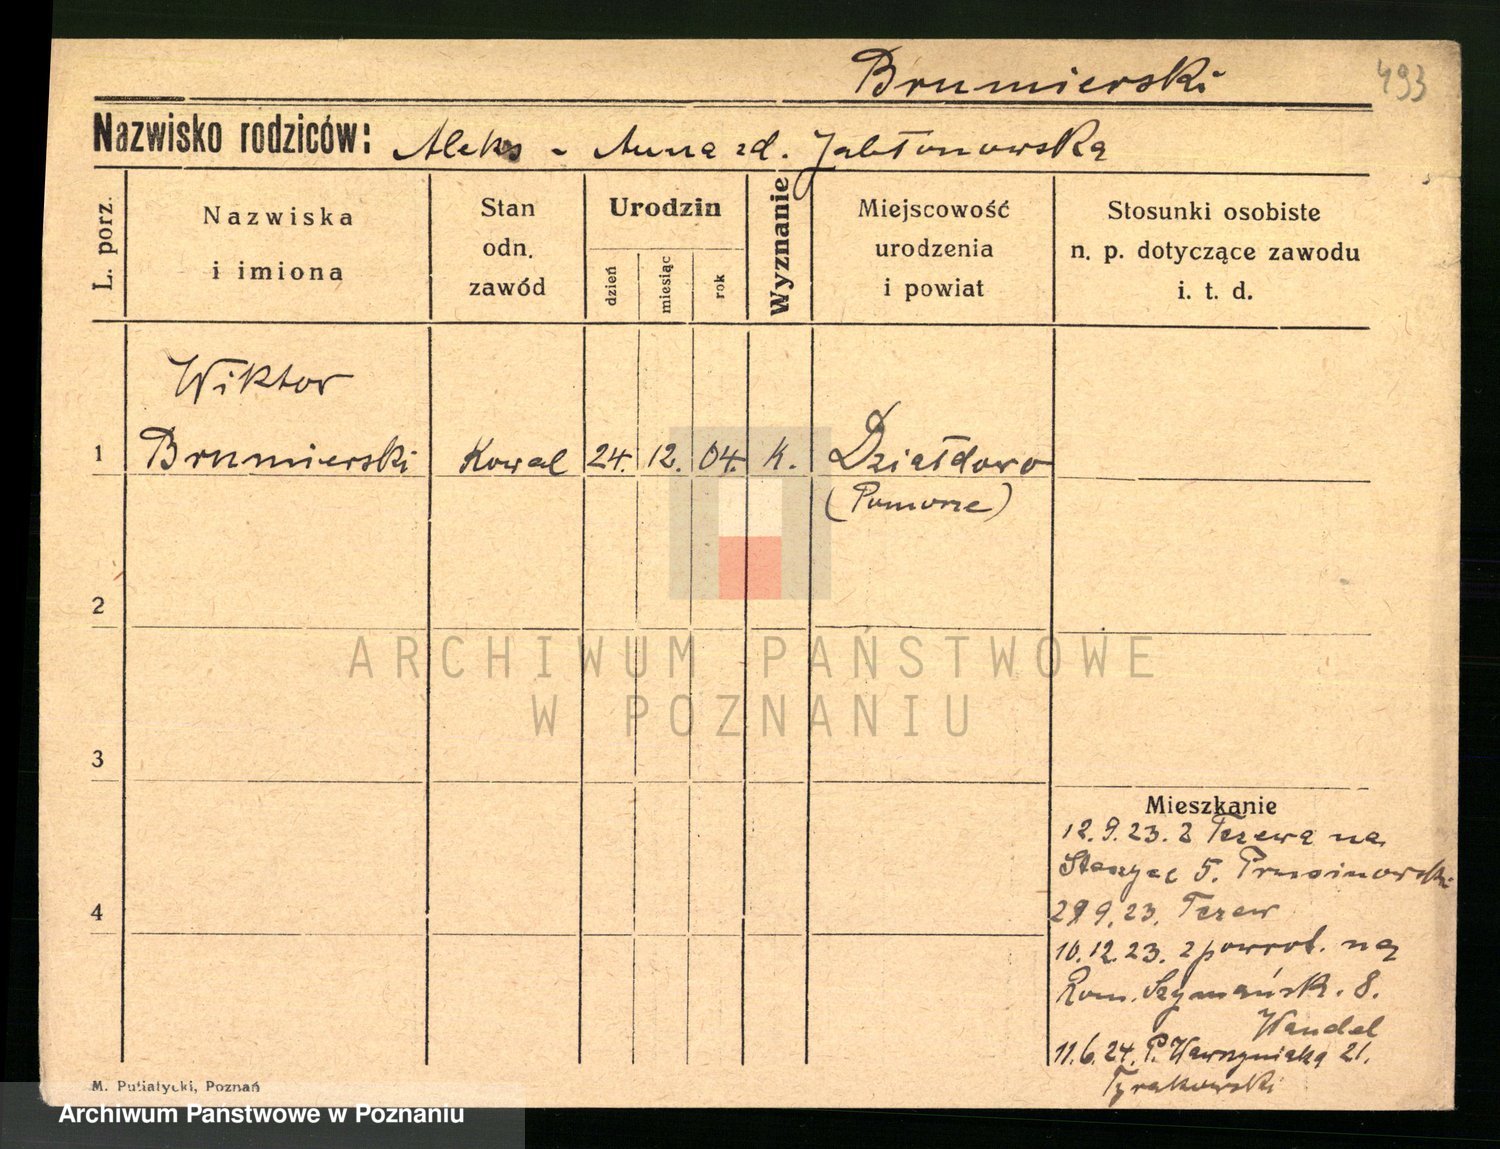 Brumierski
493
Nazwisko rodziców: Aleks - Anna zd. Jabłonowska
L. porz.
Nazwiska
i imiona
Stan
odn.
zawód
Urodzin
dzień
miesiąc
rok
Wyznanie
Miejscowość
urodzenia
i powiat
Stosunki osobiste
n. p. dotyczące zawodu
i. t. d.
Wiktor
1 Brumierski Kowal 24. 12. 04. k. Działdowo
(Pomorze)
2
ARCHIWUM PAŃSTWOWE
W POZNANIU
3
Mieszkanie
12.9.23. z Tczewa na
Staszyc 5. Prusinowski
4
29.9.23. Tczew
10.12.23. zpowrot. na
Rom. Szymańsk. 8.
Wandel
11.6.24. P. Wawrzyniaka 21.
Tyrakowski
M. Putiatycki, Poznań
Archiwum Państwowe w Poznaniu